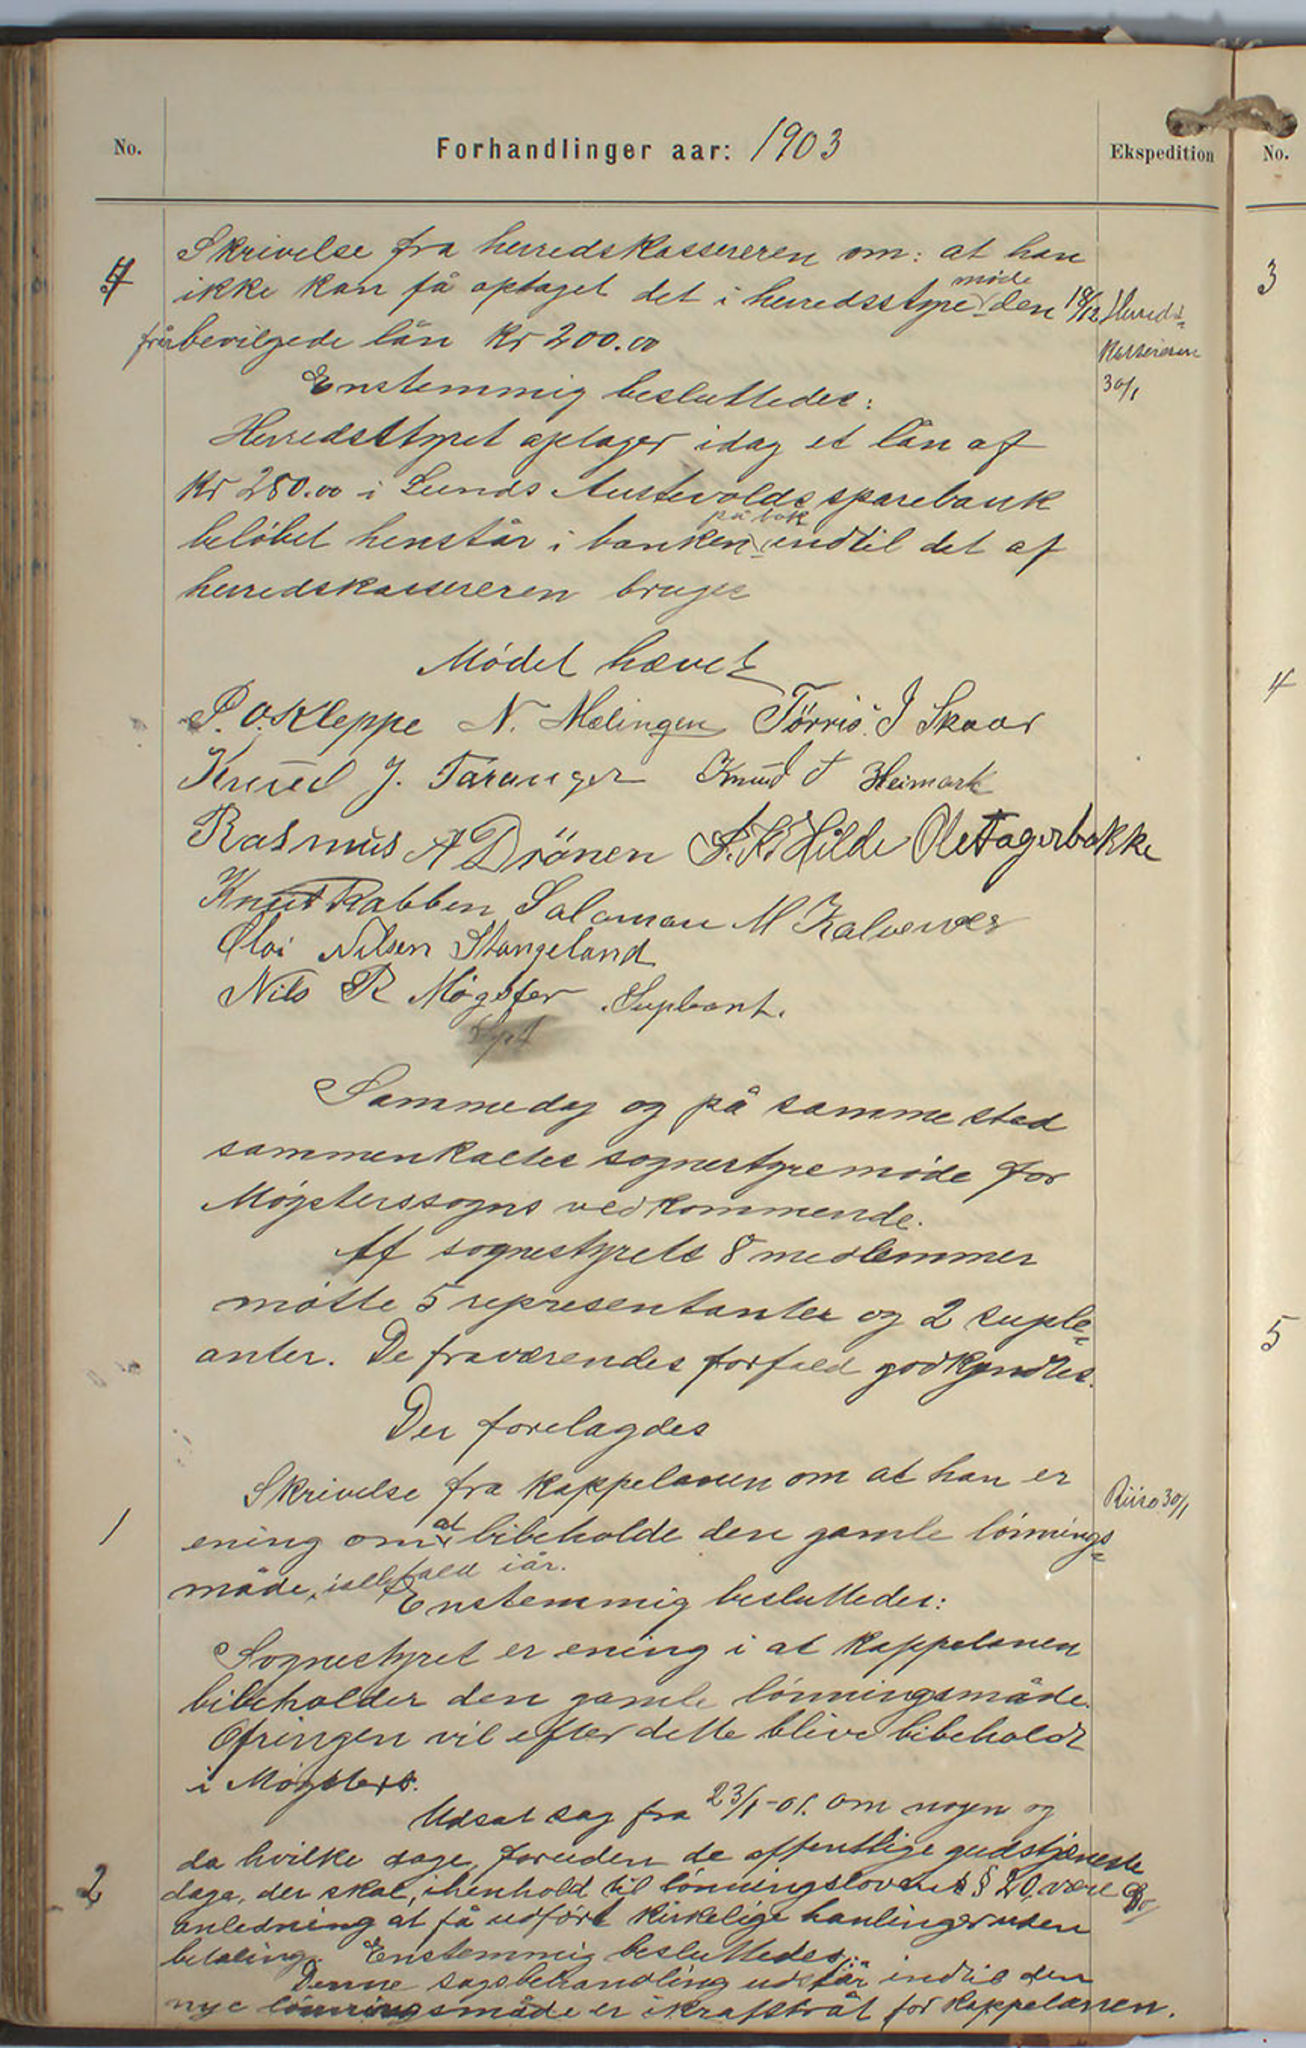 No.
Forhandlinger aar: 1903
Ekspedition
No.
Skrivelse fra herredskassereren om: at han
ikke kan få optaget det i herredsstyremøde den 18/12
bevilgede lån Kr 200.00
Herreds-
kassereren
30/1
Enstemmig besluttedes:
Herredsstyret optager idag et lån af
Kr 250.00 i Sunds Austevolds sparebank
beløbet henstår i banken på bok indtil det af
herredskassereren bruges
Mødet hævet
P. O. Kleppe N. Mølingen Törris J Skaar
Knud J. Taranger Knud J Heimark
Rasmus A Drönen S. K. Hilde Ole Fagerbakke
Knut Rabben Salomon M Kalvenes
Oloi Nilsen Stangeland
Nils R Møgster Supleant.
Sammedag og på samme sted
sammenkaltes sognestyremøde for
Møgsterssogns vedkommende.
Af sognestyrets 8 medlemmer
møtte 5 representanter og 2 suple-
anter. De fraværendes forfald godkjendtes.
Der forelagdes
1
Skrivelse fra kappelanen om at han er
ening om at bibeholde den gamle lønnings-
måde, ialfald iår.
Riiso 30/1
Enstemmig besluttedes:
Sognestyret er ening i at kappelanen
bibeholder den gamle lønningsmåde.
Ofringen vil efter dette blive bibeholdt
i Møgster.
2
Udsat sag fra 23/1-01. om nogen og
da hvilke dage, foruden de offentlige gudstjeneste
dage, der skal, ihenhold til lønningslovens § 20, være
anledning at få udført kirkelige hanlinger uden
betaling. Enstemmig besluttedes:
Denne sagsbehandling udstår indtil den
nye lønningsmåde er ikraftråt for kappelanen.
3
4
5